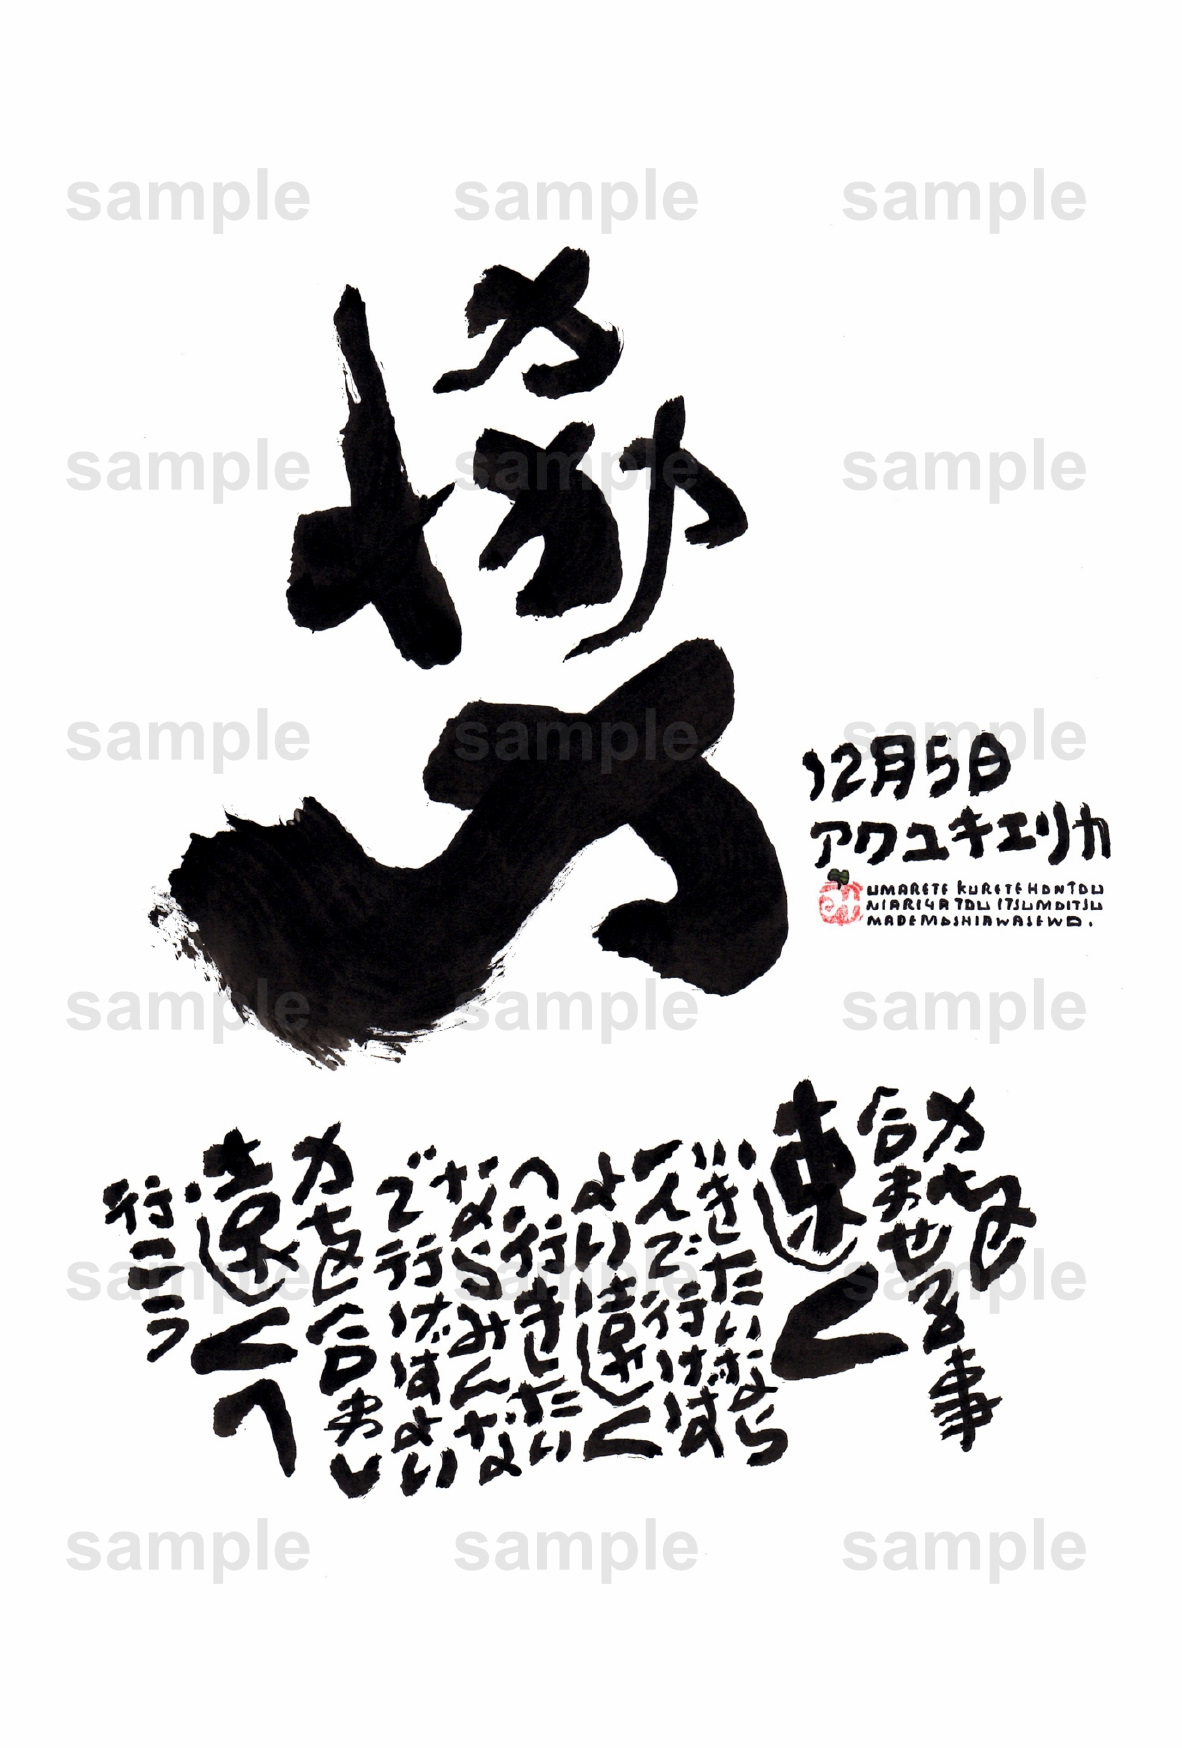 sample sample sample
sample sample sample
協力
sample sample sample
12月5日
アワユキエリカ
UMARETE KURETE HONTOU
NIARIGATOU ITSUMOITSU
MADEMOSHIAWASEWO.
sample sample sample
力を合わせる事
速く
いきたいなら
一人で行けば
よい遠く
へ行きたい
ならみんな
で行けばよい
力を合わし
遠くへ
行こう
sample sample sample
sample sample sample